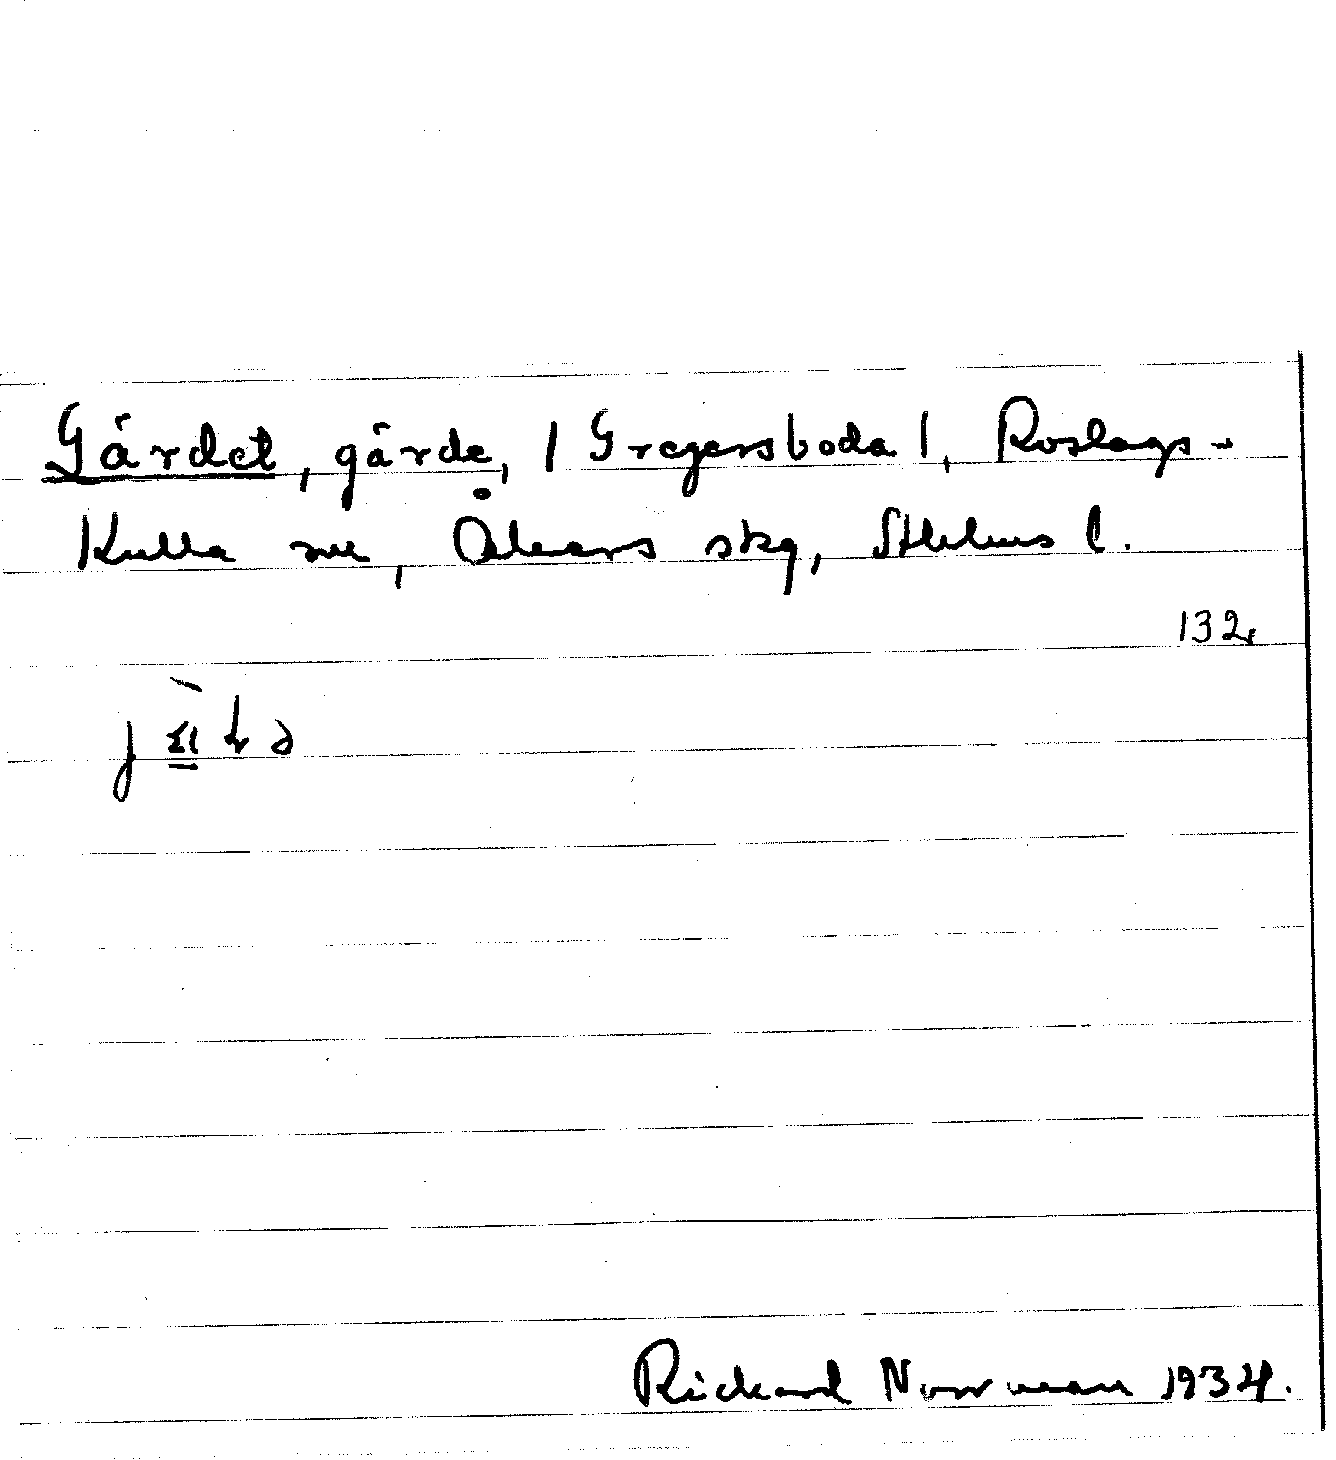 Gärdet, gärde, / Gregersboda /, Roslags-
Kulla sn, Åkers skg, Sthlms l.
132,
Rickard Norrman 1934.